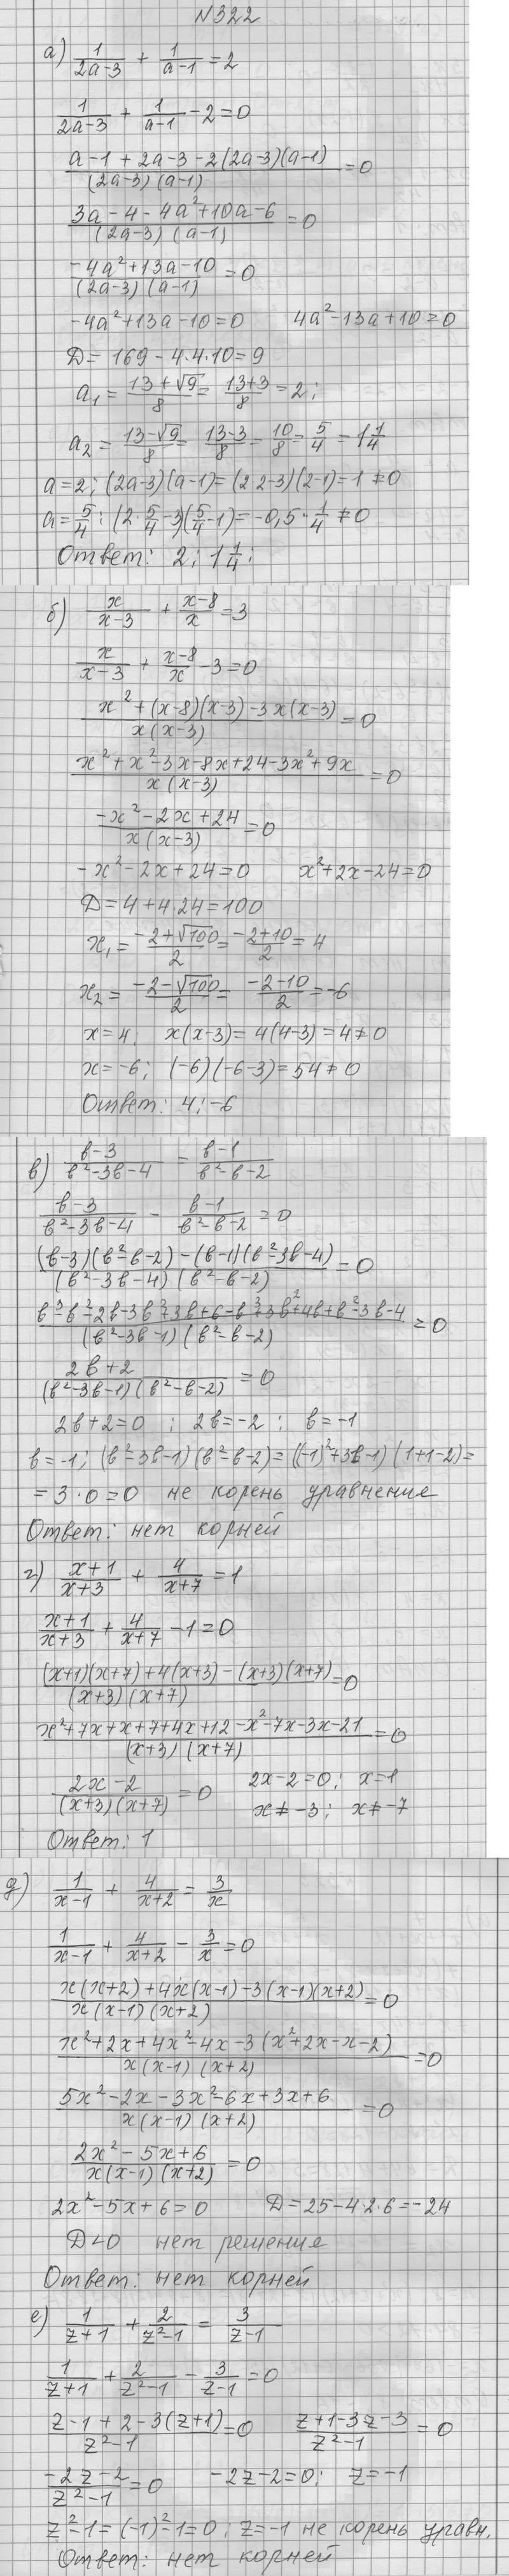 N322
а) 1/(2a-3) + 1/(a-1) = 2
1/(2a-3) + 1/(a-1) - 2 = 0
(a-1+2a-3-2(2a-3)(a-1))/((2a-3)(a-1)) = 0
(3a-4-4a²+10a-6)/((2a-3)(a-1)) = 0
(-4a²+13a-10)/((2a-3)(a-1)) = 0
-4a²+13a-10=0 4a²-13a+10=0
D = 169-4·4·10=9
a₁ = (13+√9)/8 = (13+3)/8 = 2;
a₂ = (13-√9)/8 = (13-3)/8 = 10/8 = 5/4 = 1 1/4
a=2; (2a-3)(a-1)=(2·2-3)(2-1)=1≠0
a=5/4: (2·5/4-3)(5/4-1)=-0,5·1/4≠0
Ответ: 2; 1 1/4;
б) x/(x-3) + (x-8)/x = 3
x/(x-3) + (x-8)/x - 3 = 0
(x²+(x-8)(x-3)-3x(x-3))/(x(x-3)) = 0
(x²+x²-3x-8x+24-3x²+9x)/(x(x-3)) = 0
(-x²-2x+24)/(x(x-3)) = 0
-x²-2x+24=0 x²+2x-24=0
D=4+4·24=100
x₁ = (-2+√100)/2 = (-2+10)/2 = 4
x₂ = (-2-√100)/2 = (-2-10)/2 = -6
x=4; x(x-3)=4(4-3)=4≠0
x=-6; (-6)(-6-3)=54≠0
Ответ: 4; -6
в) (в-3)/(в²-3в-4) = (в-1)/(в²-в-2)
(в-3)/(в²-3в-4) - (в-1)/(в²-в-2) = 0
((в-3)(в²-в-2)-(в-1)(в²-3в-4))/((в²-3в-4)(в²-в-2)) = 0
(в³-в²-2в-3в²+3в+6-в³+3в²+4в+в²-3в-4)/((в²-3в-1)(в²-в-2)) = 0
(2в+2)/((в²-3в-1)(в²-в-2)) = 0
2в+2=0 ; 2в=-2 ; в=-1
в=-1; (в²-3в-1)(в²-в-2)=((-1)²+3в-1)(1+1-2)=
=3·0=0 не корень уравнение
Ответ: нет корней
г) (x+1)/(x+3) + 4/(x+7) = 1
(x+1)/(x+3) + 4/(x+7) - 1 = 0
((x+1)(x+7)+4(x+3)-(x+3)(x+7))/((x+3)(x+7)) = 0
(x²+7x+x+7+4x+12-x²-7x-3x-21)/((x+3)(x+7)) = 0
(2x-2)/((x+3)(x+7)) = 0 2x-2=0; x=1
x≠-3; x≠-7
Ответ: 1
д) 1/(x-1) + 4/(x+2) = 3/x
1/(x-1) + 4/(x+2) - 3/x = 0
(x(x+2)+4x(x-1)-3(x-1)(x+2))/(x(x-1)(x+2)) = 0
(x²+2x+4x²-4x-3(x²+2x-x-2))/(x(x-1)(x+2)) = 0
(5x²-2x-3x²-6x+3x+6)/(x(x-1)(x+2)) = 0
(2x²-5x+6)/(x(x-1)(x+2)) = 0
2x²-5x+6=0 D=25-4·2·6=-24
D<0 нет решения
Ответ: нет корней
е) 1/(z+1) + 2/(z²-1) = 3/(z-1)
1/(z+1) + 2/(z²-1) - 3/(z-1) = 0
(z-1+2-3(z+1))/(z²-1) = 0 (z+1-3z-3)/(z²-1) = 0
(-2z-2)/(z²-1) = 0 -2z-2=0; z=-1
z²-1=(-1)²-1=0; z=-1 не корень уравн.
Ответ: нет корней